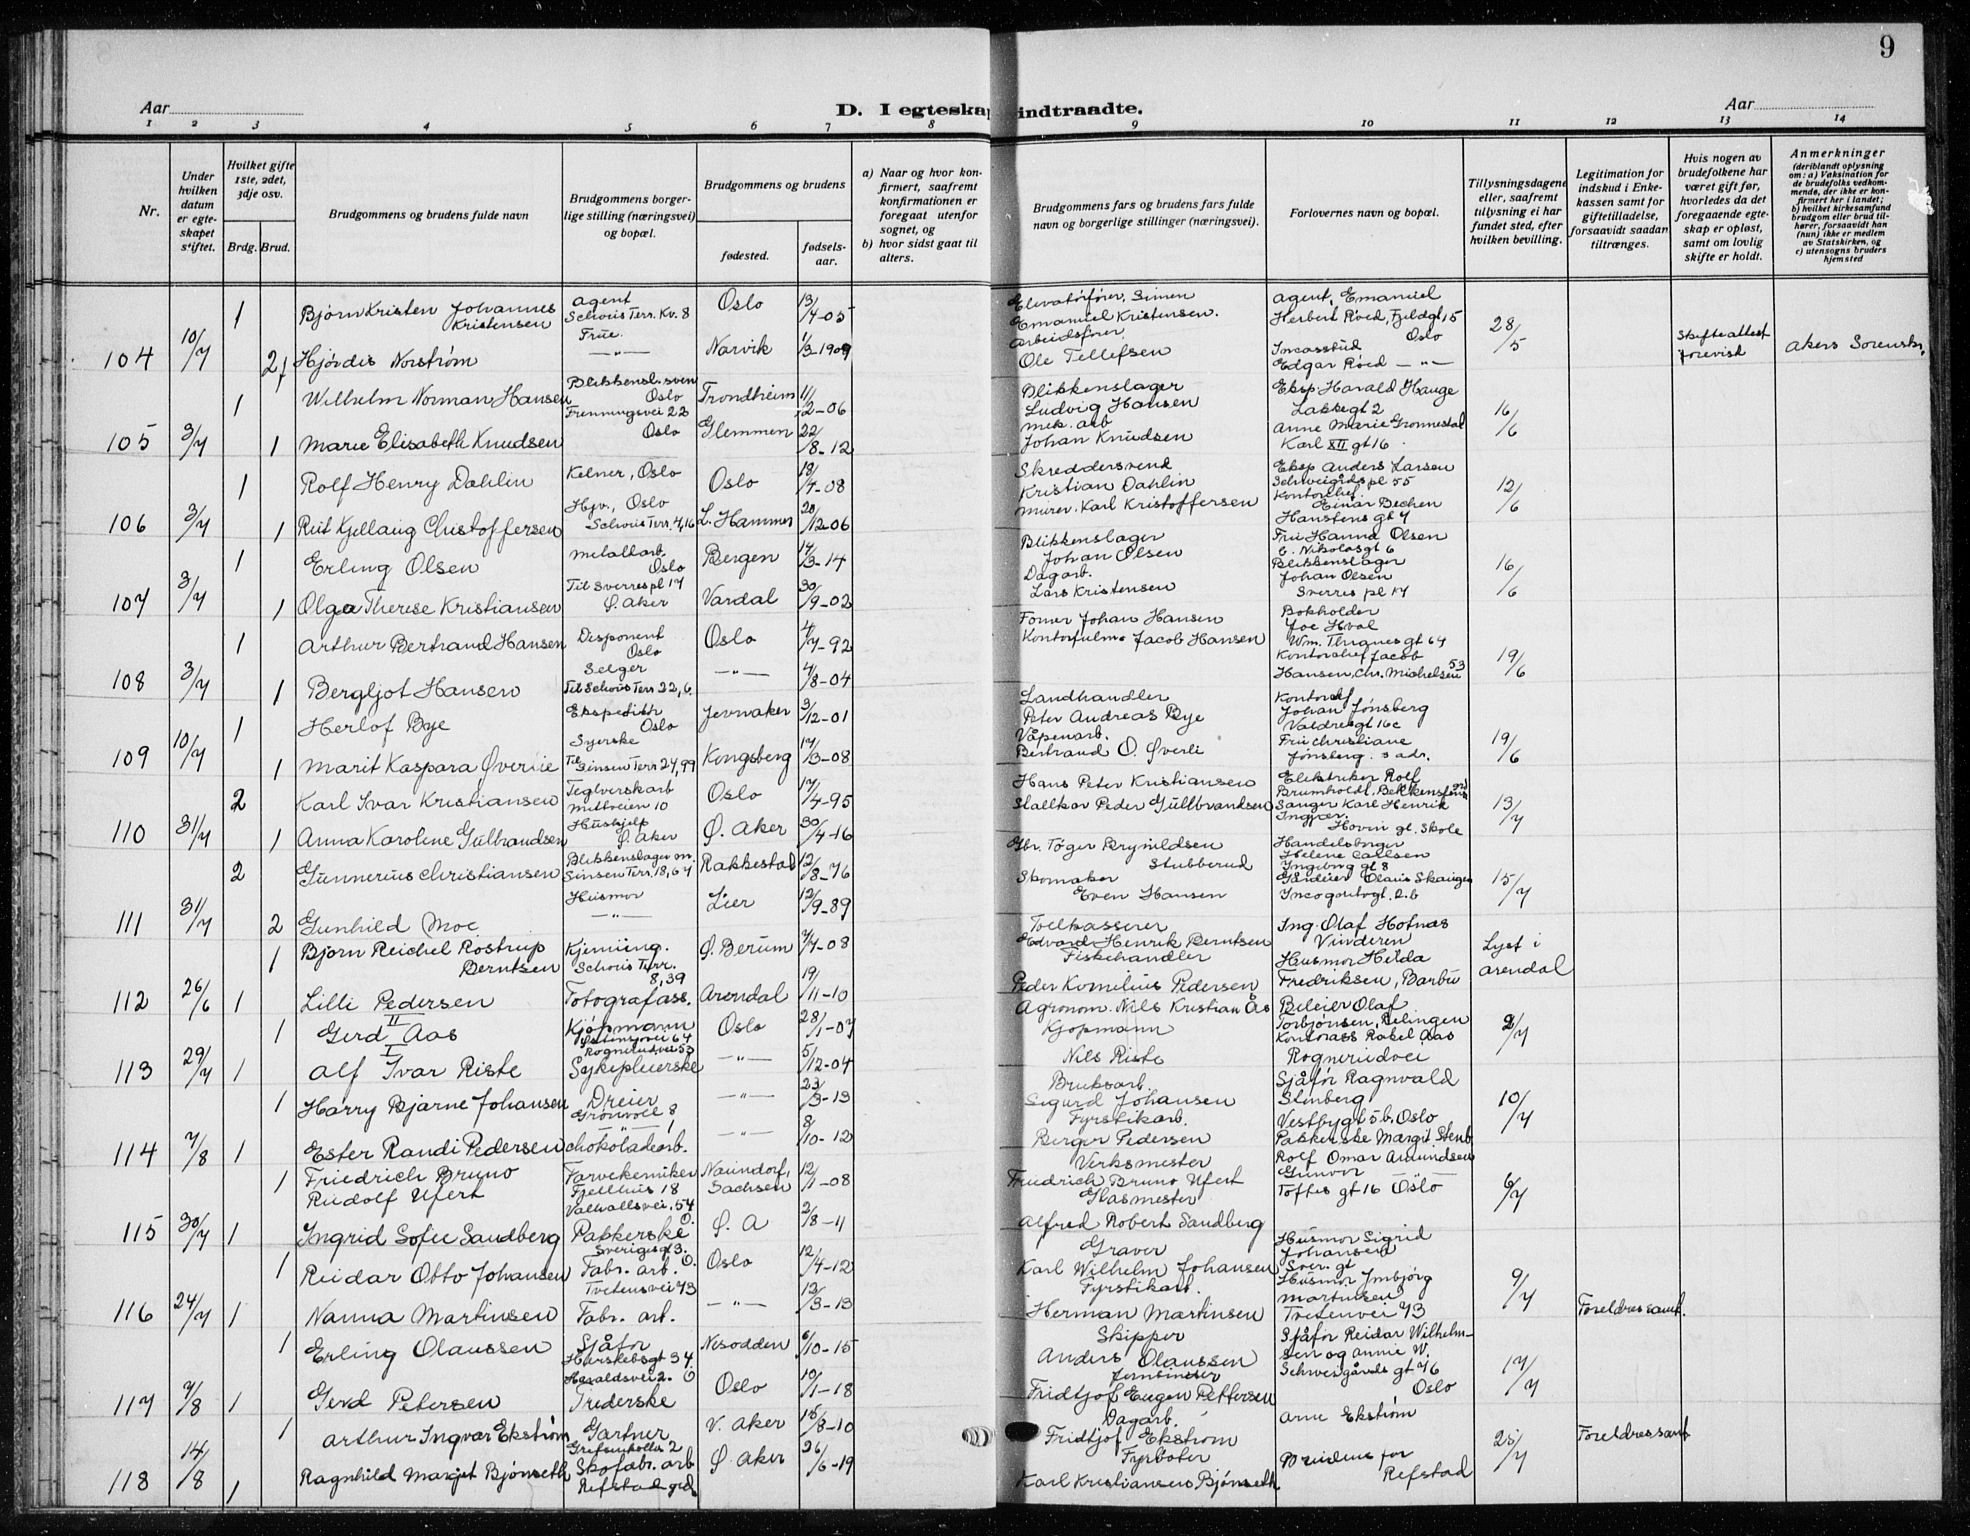 9
Aar
D. I egteskap indtraadte.
Aar
1 2 3 4 5 6 7 8 9 10 11 12 13 14
Nr.
Under hvilken datum er egteskapet stiftet.
Hvilket gifte 1ste, 2det, 3dje osv.
Brdg. Brud.
Brudgommens og brudens fulde navn
Brudgommens borgerlige stilling (næringsvei) og bopæl.
Brudgommens og brudens
fødested.
fødselsaar.
a) Naar og hvor konfirmert, saafremt konfirmationen er foregaat utenfor sognet, og
b) hvor sidst gaat til alters.
Brudgommens fars og brudens fars fulde navn og borgerlige stillinger (næringsvei).
Forlovernes navn og bopæl.
Tillysningsdagene eller, saafremt tillysning ei har fundet sted, efter hvilken bevilling.
Legitimation for indskud i Enkekassen samt for giftetilladelse, forsaavidt saadan tiltrænges.
Hvis nogen av brudefolkene har været gift før, hvorledes da det foregaaende egteskap er opløst, samt om lovlig skifte er holdt.
Anmerkninger
(deriblandt oplysning om: a) Vaksination for de brudefolks vedkommende, der ikke er konfirmert her i landet; b) hvilket kirkesamfund brudgom eller brud tilhører, forsaavidt han (hun) ikke er medlem av Statskirken, og c) utensogns bruders hjemsted
1 Bjørn Kristen Johannes Kristensen
Agent Schous Terr. Kv. 8
Oslo 13/4-05
Elevatørfører, Simen Emanuel Kristensen.
Agent, Emanuel Herbert Røed, Fjeldgt, 15 Oslo
104 10/7 2 Hjørdis Norstrøm
Frue —"—
Narvik 1/3-1909
Arbeidsfører Ole Tellefsen
Edgar Røed —"—
28/5
Skifteattest forevist
Akers Sorenskr.
1 Wilhelm Norman Hansen
Blikkensl. sven Oslo
Trondheim 11/12-06
Blikkenslager Ludvig Hansen
Eksp. Harald Hauge Lakkegt 2
105 3/7 1 Marie Elisabeth Knudsen
Frenningsvei 22 Oslo
Glemmen 22/8-12
mek. arb Johan Knudsen
Anne Marie Grønnestad Karl XII gt 16.
16/6
1 Rolf Henry Dahlin
Kelner, Oslo
Oslo 18/4-08
Skreddersvend Kristian Dahlin
Eksp Anders Larsen Schweigårds pl 55
106 3/7 1 Rut Kjellaug Christoffersen
Hjv., Oslo Schous Terr. 4, 16
L. Hammer 20/12-06
murer. Karl Kristoffersen
Kontorchef. Einar Bechen Hanstens gt 7
12/6
1 Erling Olsen
Metallarb. Oslo
Bergen 14/3-14
Blikkenslager Johan Olsen
Fru Hanna Olsen 6. Nikolasgt 6
107 3/7 1 Olga Therese Kristiansen
Til Sverres pl 17 Ø. Aker
Vardal 30/9-02
Dagarb. Lars Kristensen
Blikkenslager Johan Olsen Sverres pl 17
16/6
1 Arthur Bertrand Hansen
Disponent Oslo
Oslo 4/7-92
Former Johan Hansen
Bokholder Joe Hval Wm. Thranes gt 64
108 3/7 1 Bergljot Hansen
Selger Til Schous Terr 22, 6.
—"— 4/8-04
Kontorfulm. Jacob Hansen
Kontorchef Jacob Hansen, Chr. Michelsens 53
19/6
1 Herlof Bye
Ekspeditør Oslo
Jevnaker 3/12-01
Landhandler Peter Andreas Bye
Kontorchef Johan Jønsberg Valdresgt 16c
109 10/7 1 Marit Kaspara Øverlie
Syerske Til Sinsen Terr 24, 99
Kongsberg 17/3-08
Våpenarb. Bertrand O. Øverli
Fru Christiane Jønsberg s. adr.
19/6
2 Karl Ivar Kristiansen
Teglverksarb Midtveien 10
Oslo 17/4-95
Hans Peter Kristiansen
Elektriker Rolf Brumholdt, Bekkenstens
110 31/7 1 Anna Karolene Gulbrandsen
Hushjelp Ø. Aker
Ø. Aker 30/4-16
Stallkar Peder Gullbrandsen
Sanger Karl Henrik Ingvær. Hovin gt. Skole
13/7
2 Gunnerius Christiansen
Blikkenslager m. Sinsen Terr. 18, 67
Rakkestad 12/8-76
Gbr. Tøger Brynildsen Stubberud
Handelsborger Helene Carlsen Ingeborg gt 8
111 31/7 2 Gunhild Moe
Husmor —"—
Lier 12/9-89
Skomaker Even Hansen
Gårdeier Olaus Skaugen Incognitogt. 2.b
15/7
1 Bjørn Reichel Rostrup Berntsen
Kjemiing. Schous Terr. 8,39
Ø. Berum 7/7-08
Tollkasserer Edvard Henrik Berntsen
Ing. Olaf Hofnæs Vinderen
112 26/6 1 Lilli Pedersen
Fotografass.
Arendal 19/11-10
Fiskehandler Peder Kornelius Pedersen
Husmor Hilda Fredriksen, Barbu
Lyst i Arendal
1 Gerd II Aas
Kjøpmann
Oslo 28/1-07
Agronom. Nils Kristian Ås
Bileier Olaf Torbjørnsen, Rælingen
113 29/7 1 Alf I Ivar Riste
Rognerudvei 53 Sykepleierske
—"— 5/12-04
Kjøpmann Nils Riste
Kontorass Rakel Aas Rognerudvei
2/7
1 Harry Bjarne Johansen
Dreier Grønvoll 8
—"— 23/3-13
Bruksarb. Sigurd Johansen
Sjåfør Ragnvald Stenberg Vestbygt 5b, Oslo
114 7/8 1 Ester Randi Pedersen
—"— 1 Chokoladearb.
—"— 8/10-12
Fyrstikarb. Berger Pedersen
Pakkerske Margit Stenb.
10/7
1 Friedrich Bruno Rudolf Ufert
Farvekemiker Fjellhus 18
Naundorf, Sachsen 12/1-08
Verksmester Friedrich Bruno Ufert
Rolf Omar Amundsen Gunvor —"— Toftes gt 16 Oslo
115 30/7 1 Ingrid Sofie Sandberg
Valhallsvei, 54 O. Pakkerske
Ø. A 2/8-11
Glasmester Alfred Robert Sandberg
6/7
1 Reidar Otto Johansen
Sverigesgt 3. O. Fabr. arb.
Oslo 12/4-12
Graver Karl Wilhelm Johansen
Husmor Sigrid Johansen Sver. gt
116 24/7 1 Nanna Martinsen
Tvetensvei 73 Fabr. art.
—"— 12/3-13
Fyrstikarb. Herman Martinsen
Husmor Imbjørg Martinsen Tvetenvei 73
9/7
Foreldres samt.
1 Erling Olaussen
Sjåfør
Nesodden 6/10-15
Skipper Anders Olaussen
Sjåfør Reidar Wilhelmsen og Annie W. Schweigårds gt 76 Oslo
117 7/8 1 Gerd Petersen
Haraldsvei 2. O Trederske
Oslo 19/1-18
Jernbinder Fridtjof Eugen Pettersen
17/7
1 Arthur Ingvar Ekstrøm
Gartner
V. Aker 15/8-10
Dagarb. Fridtjof Ekstrøm
Arne Ekstrøm
118 14/8 1 Ragnhild Margit Bjønseth
Skofabr. arb Refstad grd.
Ø. Aker 26/6-19
Fyrbøter Karl Kristiansen Bjønseth
Brudens far Refstad
25/7
Foreldres samt